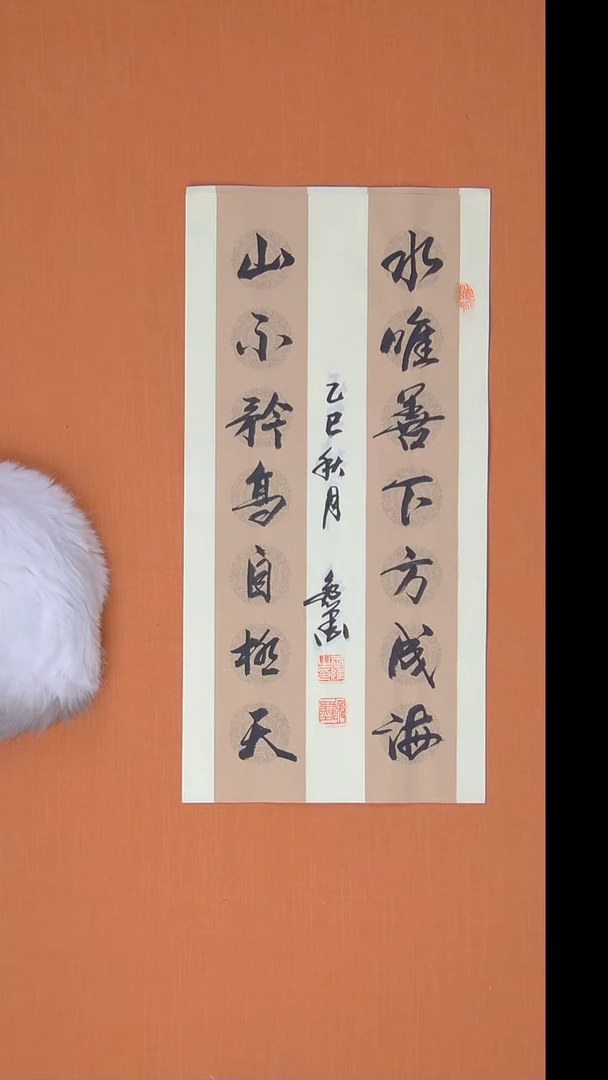 水唯善下方成海
山不矜高自极天
乙巳秋月